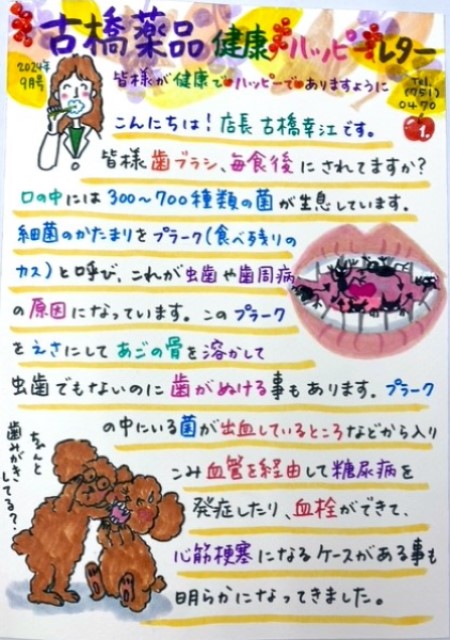 古橋薬品 健康 ハッピーレター
2024年
9月号
皆様が健康でハッピーでありますように
Tel.
(751)
0470
1.
こんにちは！店長 古橋幸江です。
皆様歯ブラシ、毎食後にされてますか？
口の中には300〜700種類の菌が生息しています。
細菌のかたまりをプラーク(食べ残りの
カス)と呼び、これが虫歯や歯周病
の原因になっています。このプラーク
をえさにしてあごの骨を溶かして
虫歯でもないのに歯がぬける事もあります。プラーク
の中にいる菌が出血しているところなどから入り
こみ血管を経由して糖尿病を
発症したり、血栓ができて、
心筋梗塞になるケースがある事も
明らかになってきました。
ちゃんと
歯みがき
してる？